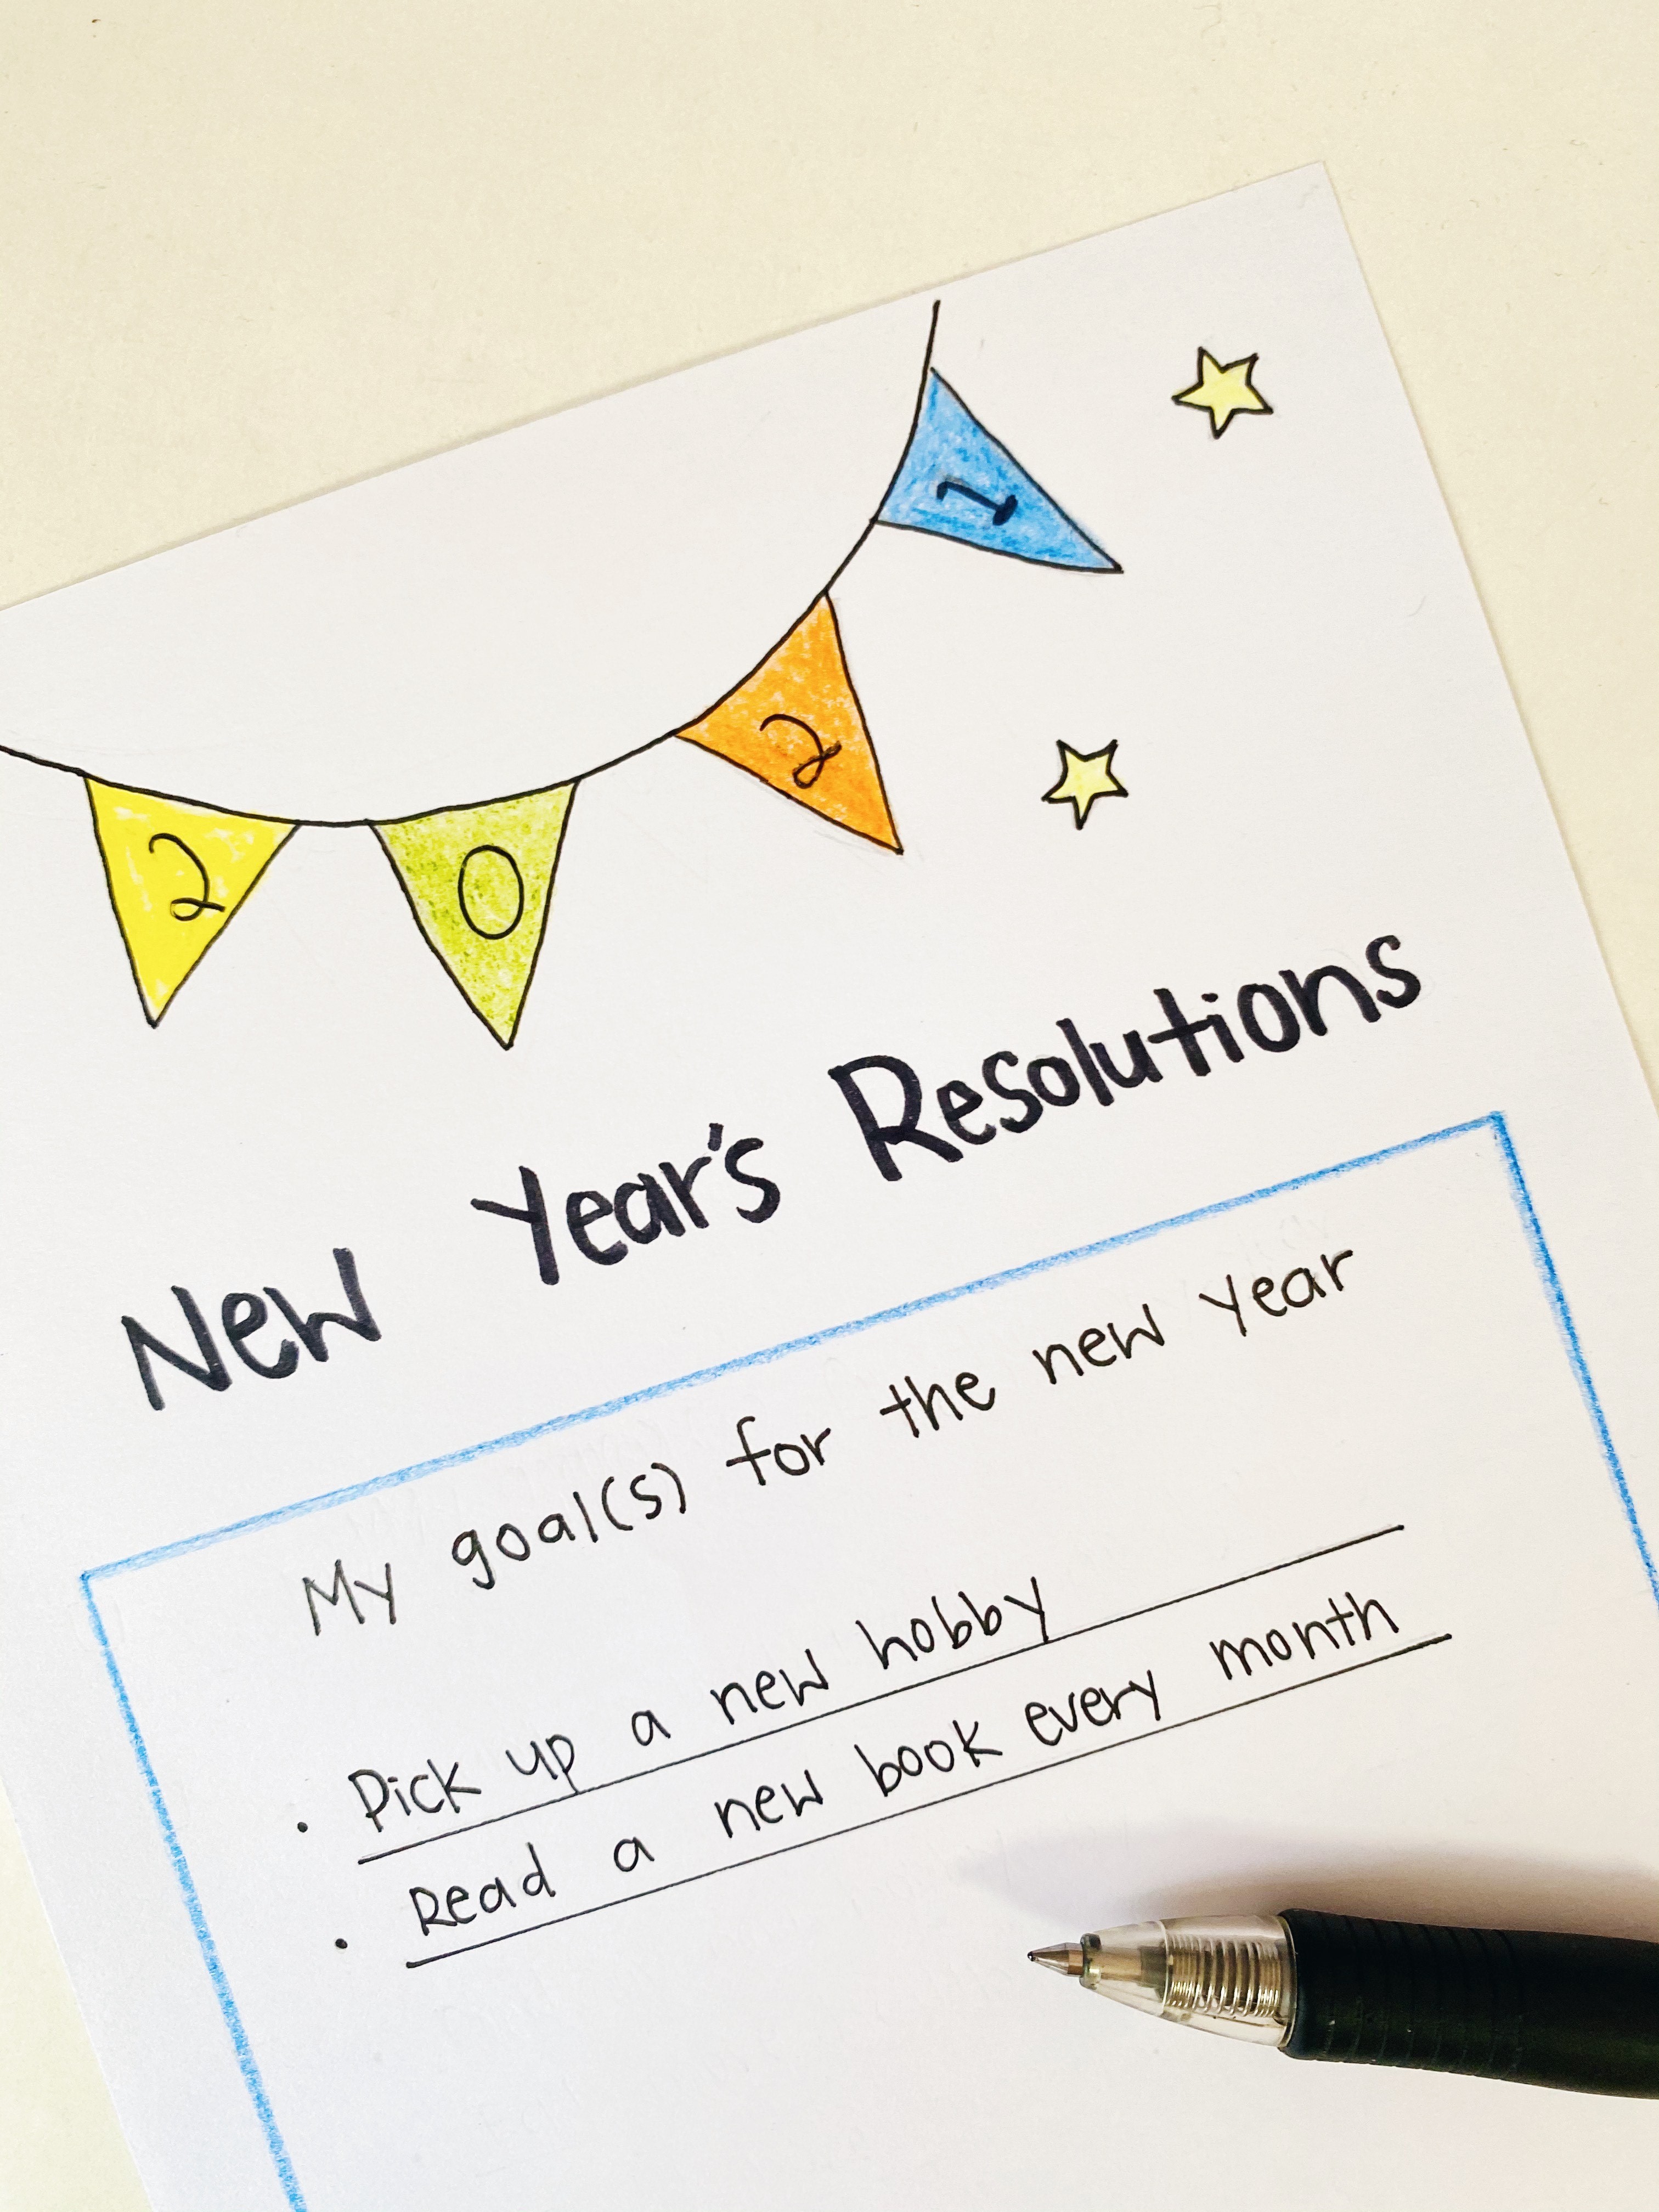 2 0 2 1
New Year's Resolutions
My goal(s) for the new year
• Pick up a new hobby
• Read a new book every month